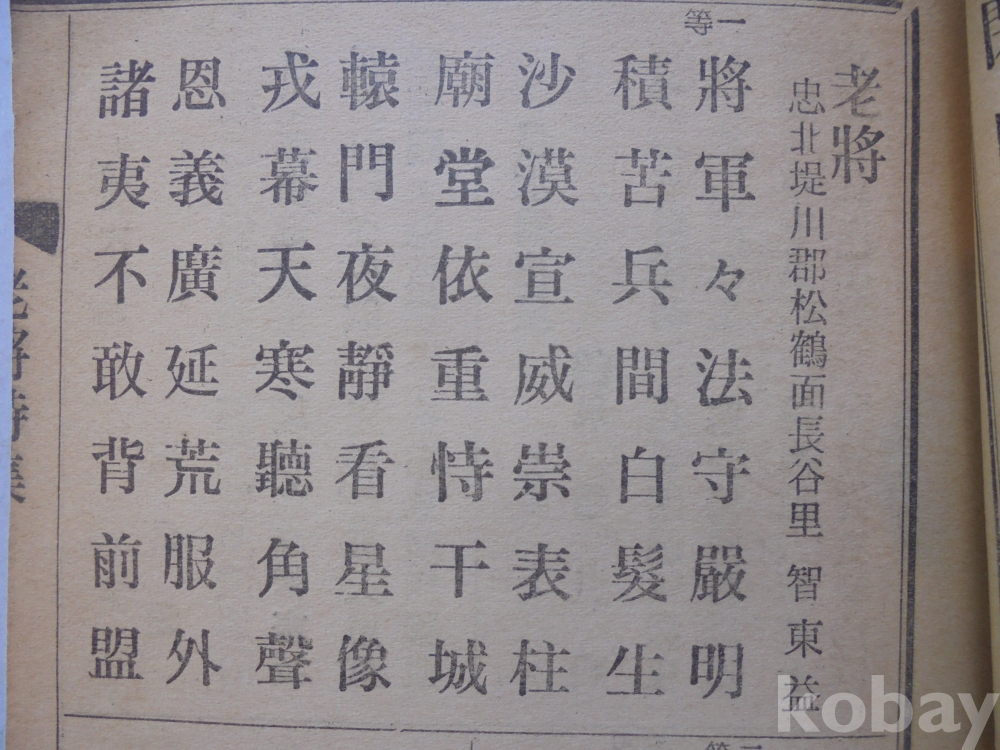 老將
忠北堤川郡松鶴面長谷里 智東益
一等
將軍々法守嚴明
積苦兵間白髮生
沙漠宣威崇表柱
廟堂依重恃干城
轅門夜靜看星像
戎幕天寒聽角聲
恩義廣延荒服外
諸夷不敢背前盟
老將詩集
kobay